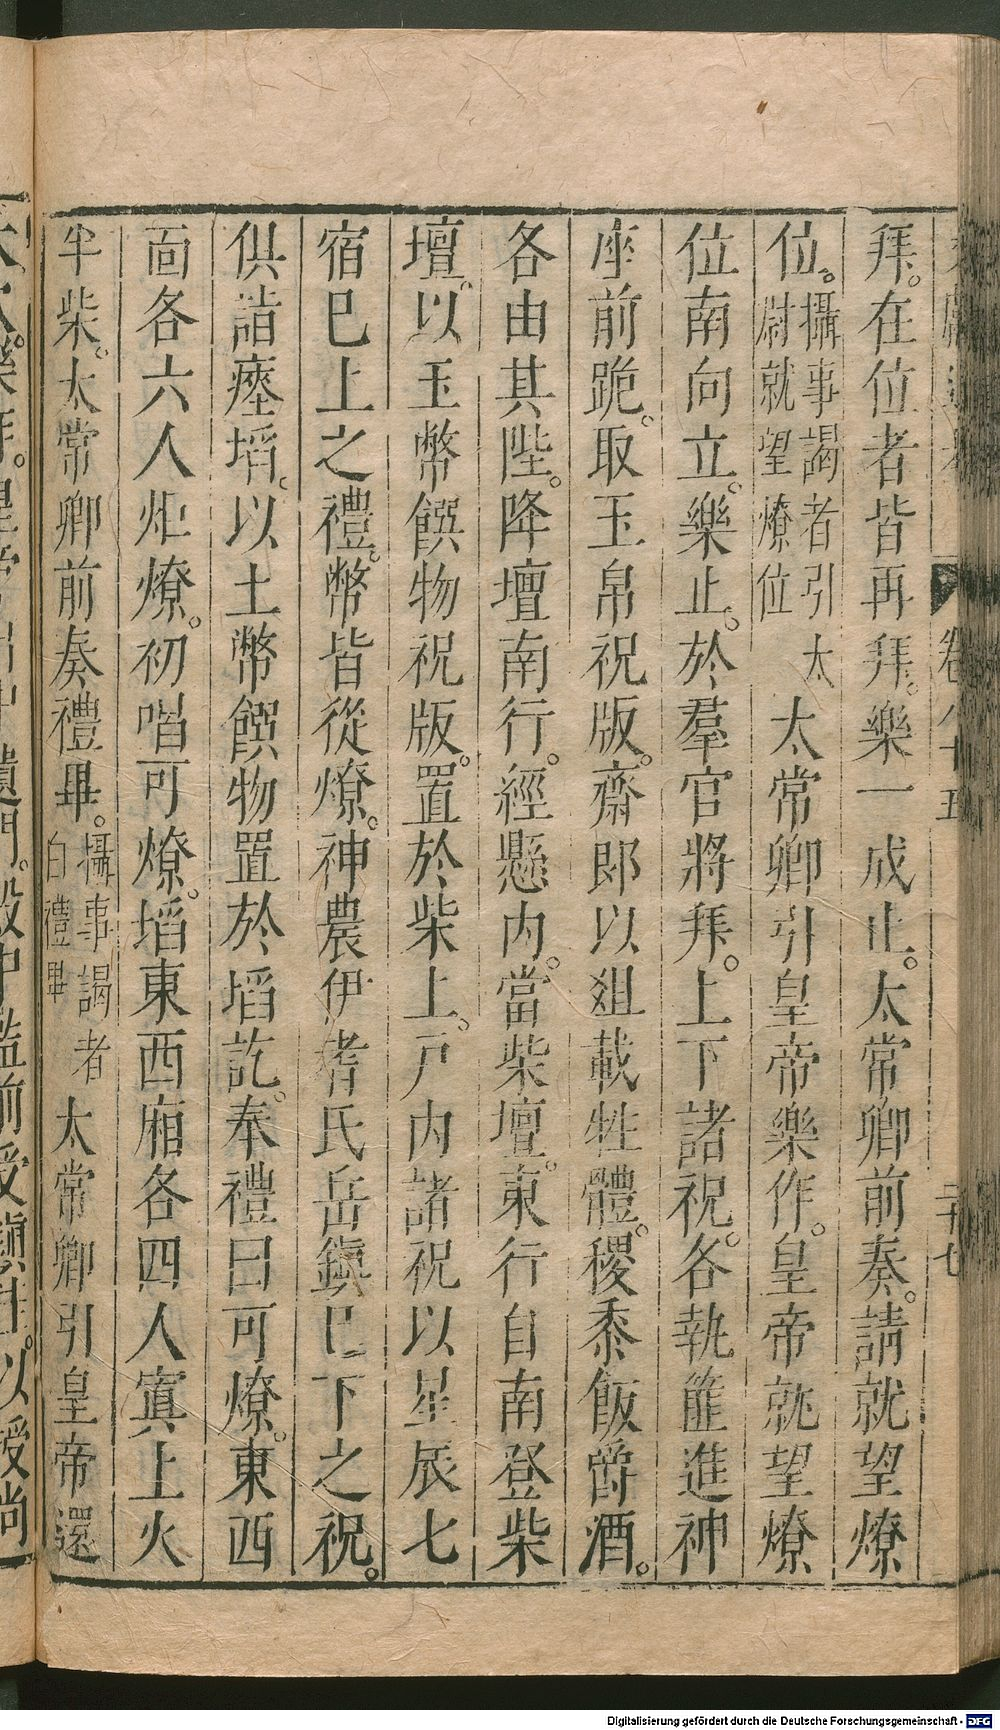 拜。在位者皆再拜。樂一成止。太常卿前奏。請就望燎
位。攝事謁者引太尉就望燎位太常卿引皇帝樂作。皇帝就望燎
位南向立。樂止。於羣官將拜。上下諸祝。各執篚進神
座前跪。取玉帛祝版。齋郎以俎載牲體。稷黍飯爵酒。
各由其陛。降壇南行。經懸内。當柴壇。東行自南登柴
壇。以玉幣饌物祝版。置於柴上。戸内諸祝以星辰七
宿巳上之禮。幣皆從燎。神農伊耆氏岳鎮巳下之祝。
俱詣瘞埳。以土幣饌物置於埳訖。奉禮曰可燎。東西
面各六人炬燎。初喈可燎。埳東西廂各四人寘上火
半柴。太常卿前奏禮畢。攝事謁者白禮畢太常卿引皇帝還
卷八十五
二十七
Digitalisierung gefördert durch die Deutsche Forschungsgemeinschaft - DFG